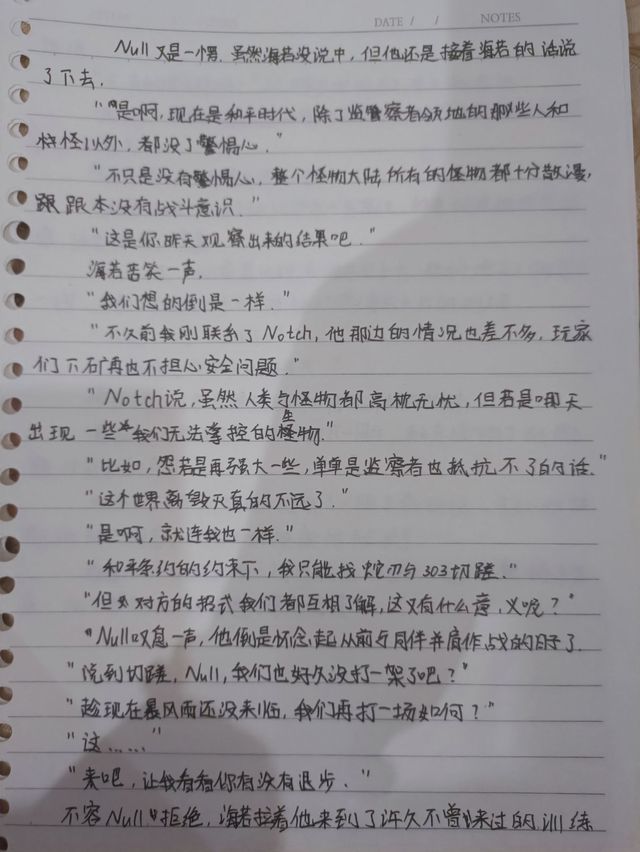 DATE / / NOTES
Null又是一愣.虽然海若没说中,但他还是接着海若的话说
了下去.
"是啊,现在是和平时代,除了监察者领地的那些人和
怪以外,都没了警惕心."
"不只是没有警惕心,整个怪物大陆所有的怪物都十分散漫,
跟跟本没有战斗意识."
"这是你昨天观察出来的结果吧."
海若苦笑一声.
"我们想的倒是一样."
"不久前我刚联系了Notch,他那边的情况也差不多,玩家
们下矿再也不担心安全问题."
"Notch说,虽然人类与怪物都高枕无忧,但若是哪天
出现一些我们无法掌控的怪物."
"比如,怨若是再强大一些,单单是监察者也抵抗不了的话."
"这个世界离毁灭真的不远了."
"是啊,就连我也一样."
"和平条约的约束下,我只能找炝刃与303切蹉."
"但对方的招式我们都互相了解,这又有什么意义呢?"
"Null叹息一声,他倒是怀念起从前与同伴并肩作战的日子了.
"说到切蹉,Null,我们也好久没打一架了吧?"
"趁现在暴风雨还没来临,我们再打一场如何?"
"这……"
"来吧,让我看看你有没有退步."
不容Null拒绝,海若拉着他来到了许久不曾来过的训练